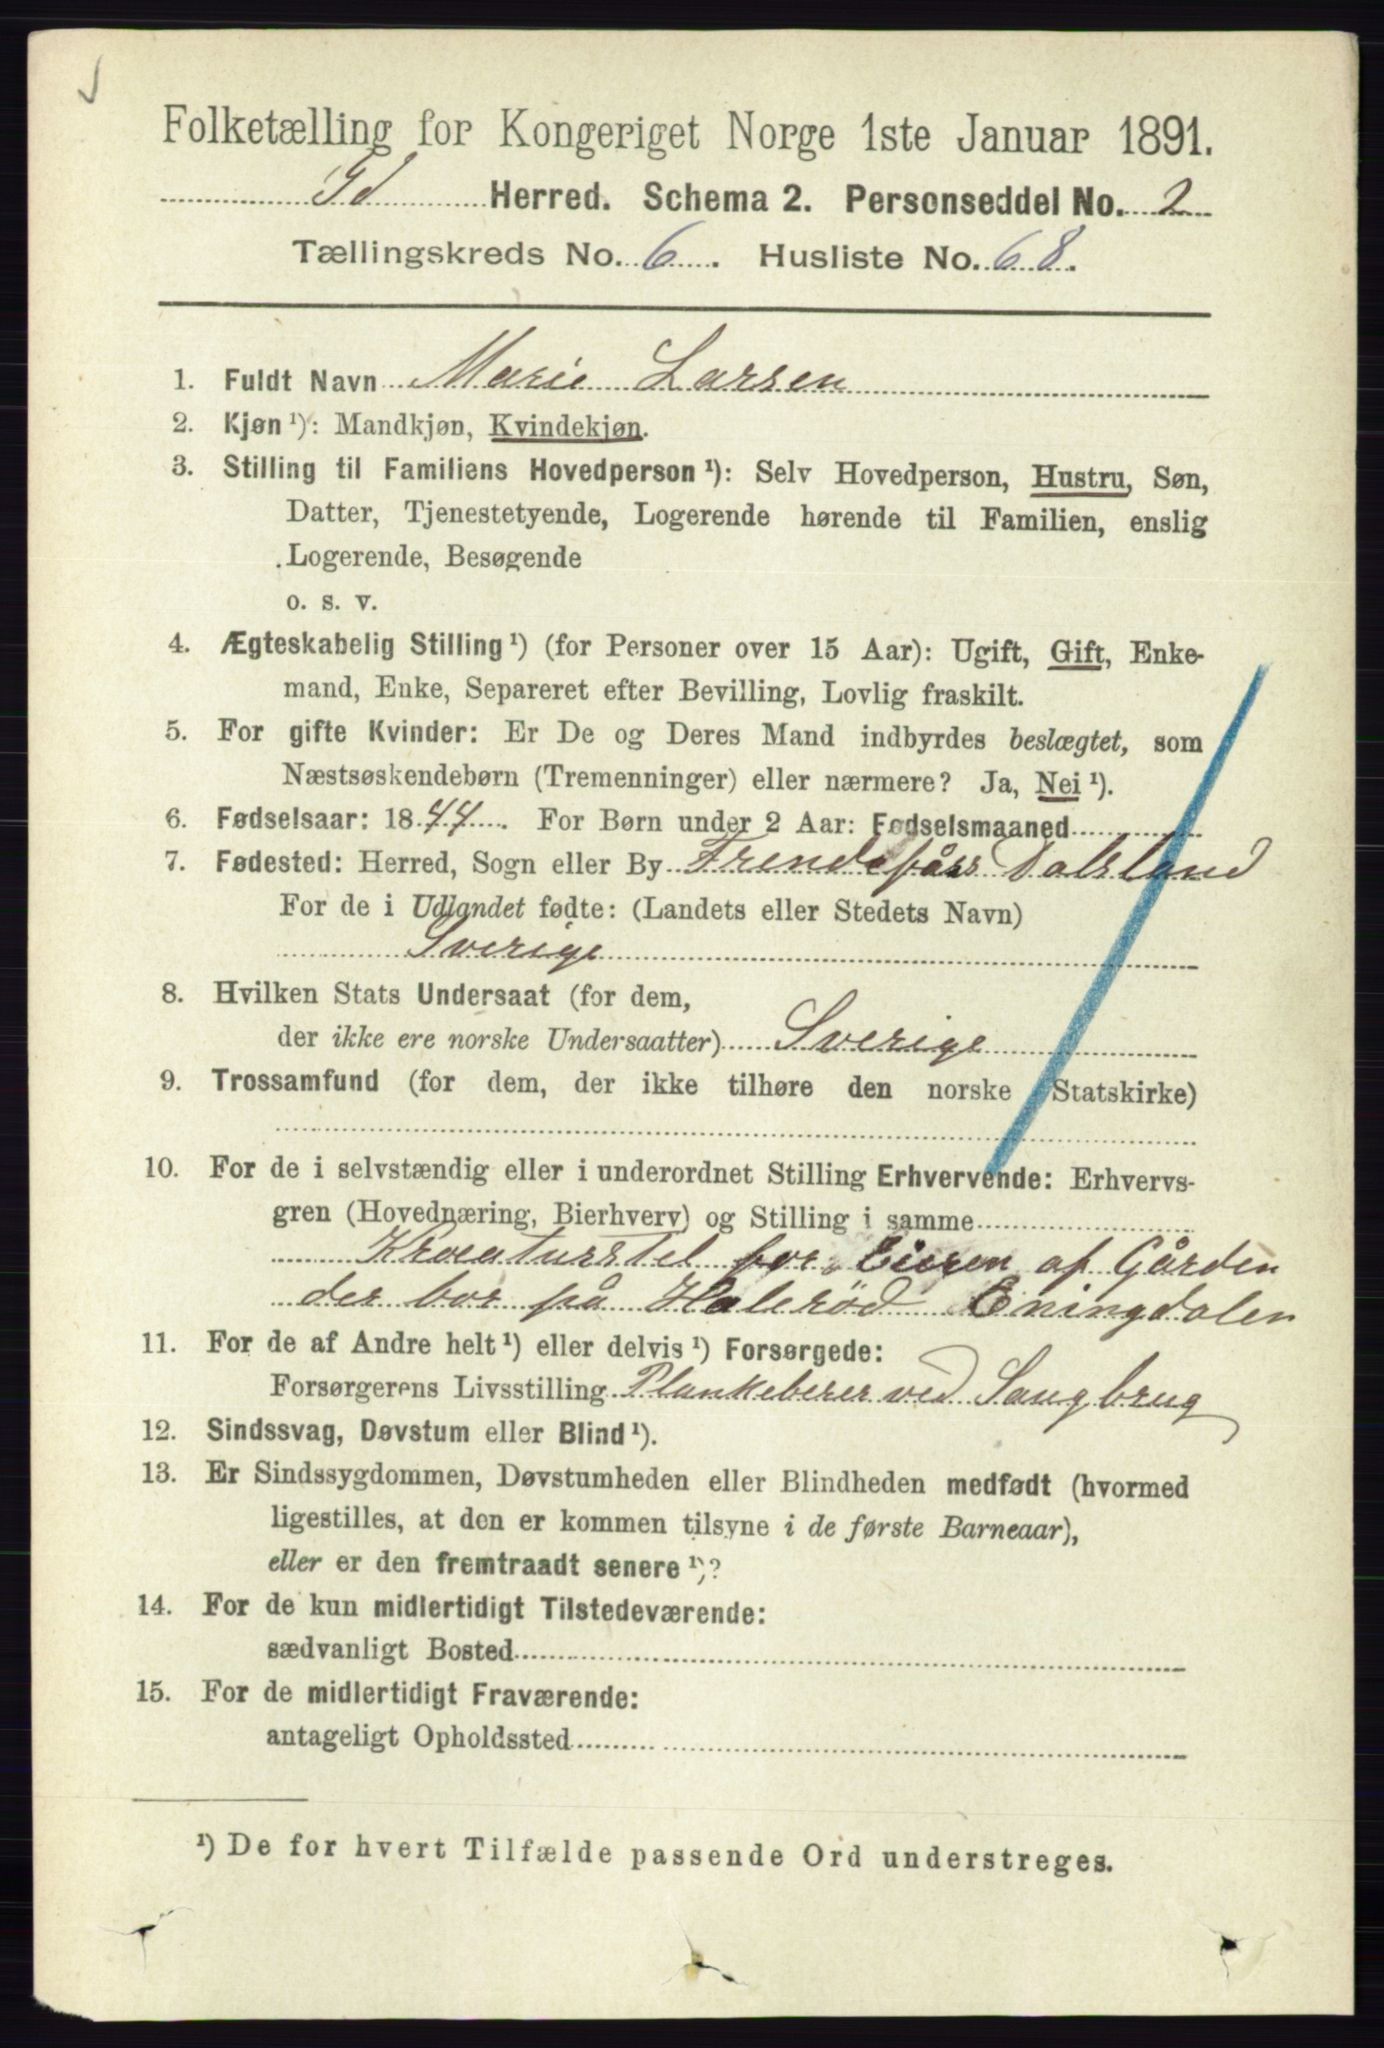 Folketælling for Kongeriget Norge 1ste Januar 1891.
Id Herred. Schema 2. Personseddel No. 2
Tællingskreds No. 6. Husliste No. 68.
1. Fuldt Navn Marie Larsen
2. Kjøn ¹): Mandkjøn, Kvindekjøn.
3. Stilling til Familiens Hovedperson ¹): Selv Hovedperson, Hustru, Søn,
Datter, Tjenestetyende, Logerende hørende til Familien, enslig
Logerende, Besøgende
o. s. v.
4. Ægteskabelig Stilling ¹) (for Personer over 15 Aar): Ugift, Gift, Enke-
mand, Enke, Separeret efter Bevilling, Lovlig fraskilt.
5. For gifte Kvinder: Er De og Deres Mand indbyrdes beslægtet, som
Næstsøskendebørn (Tremenninger) eller nærmere? Ja, Nei ¹).
6. Fødselsaar: 1844. For Børn under 2 Aar: Fødselsmaaned
7. Fødested: Herred, Sogn eller By Dalsland
For de i Udlandet fødte: (Landets eller Stedets Navn)
Sverige
8. Hvilken Stats Undersaat (for dem,
der ikke ere norske Undersaatter) Sverige
9. Trossamfund (for dem, der ikke tilhøre den norske Statskirke)
10. For de i selvstændig eller i underordnet Stilling Erhvervende: Erhvervs-
gren (Hovednæring, Bierhverv) og Stilling i samme
Kreaturstel for Eieren af Gården
der bor på Holerød Eningdalen
11. For de af Andre helt ¹) eller delvis ¹) Forsørgede:
Forsørgerens Livsstilling Plankeberer ved Saugbrug
12. Sindssvag, Døvstum eller Blind ¹).
13. Er Sindssygdommen, Døvstumheden eller Blindheden medfødt (hvormed
ligestilles, at den er kommen tilsyne i de første Barneaar),
eller er den fremtraadt senere ¹)?
14. For de kun midlertidigt Tilstedeværende:
sædvanligt Bosted
15. For de midlertidigt Fraværende:
antageligt Opholdssted
¹) De for hvert Tilfælde passende Ord understreges.